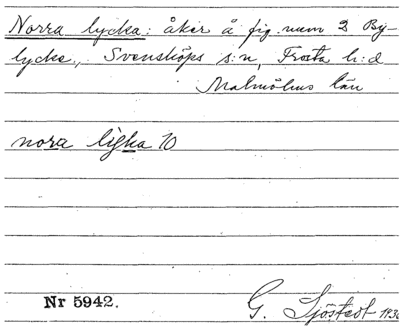 Norra lycka: åker å fig. num 2 By-
lycke, Svensköps s:n, Frosta h:d
Malmöhus län
nora ligka 10
Nr 5942.
G. Sjöstedt 1936